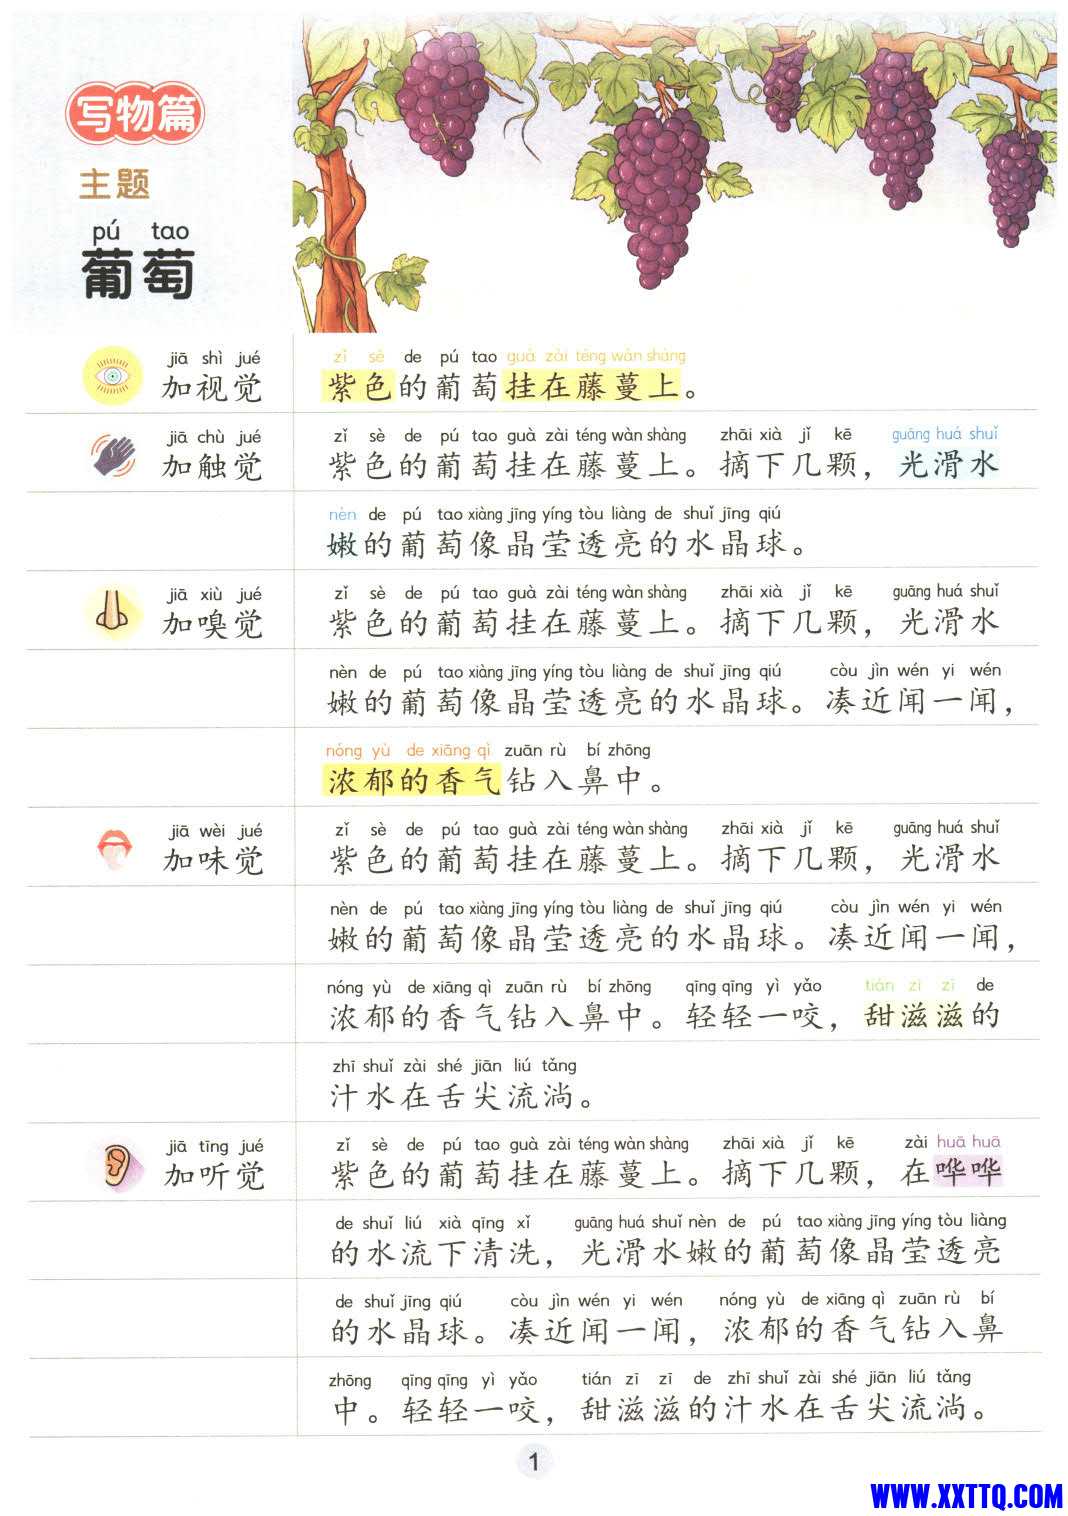 写物篇
主题
pú tao
葡萄
jiā shì jué zǐ sè de pú tao guà zài téng wàn shàng
加视觉 紫色的葡萄挂在藤蔓上。
jiā chù jué zǐ sè de pú tao guà zài téng wàn shàng zhāi xià jǐ kē guāng huá shuǐ
加触觉 紫色的葡萄挂在藤蔓上。摘下几颗，光滑水
nèn de pú tao xiàng jīng yíng tòu liàng de shuǐ jīng qiú
嫩的葡萄像晶莹透亮的水晶球。
jiā xiù jué zǐ sè de pú tao guà zài téng wàn shàng zhāi xià jǐ kē guāng huá shuǐ
加嗅觉 紫色的葡萄挂在藤蔓上。摘下几颗，光滑水
nèn de pú tao xiàng jīng yíng tòu liàng de shuǐ jīng qiú còu jìn wén yi wén
嫩的葡萄像晶莹透亮的水晶球。凑近闻一闻，
nóng yù de xiāng qì zuān rù bí zhōng
浓郁的香气钻入鼻中。
jiā wèi jué zǐ sè de pú tao guà zài téng wàn shàng zhāi xià jǐ kē guāng huá shuǐ
加味觉 紫色的葡萄挂在藤蔓上。摘下几颗，光滑水
nèn de pú tao xiàng jīng yíng tòu liàng de shuǐ jīng qiú còu jìn wén yi wén
嫩的葡萄像晶莹透亮的水晶球。凑近闻一闻，
nóng yù de xiāng qì zuān rù bí zhōng qīng qīng yì yǎo tián zī zī de
浓郁的香气钻入鼻中。轻轻一咬，甜滋滋的
zhī shuǐ zài shé jiān liú tǎng
汁水在舌尖流淌。
jiā tīng jué zǐ sè de pú tao guà zài téng wàn shàng zhāi xià jǐ kē zài huā huā
加听觉 紫色的葡萄挂在藤蔓上。摘下几颗，在哗哗
de shuǐ liú xià qīng xǐ guāng huá shuǐ nèn de pú tao xiàng jīng yíng tòu liàng
的水流下清洗，光滑水嫩的葡萄像晶莹透亮
de shuǐ jīng qiú còu jìn wén yi wén nóng yù de xiāng qì zuān rù bí
的水晶球。凑近闻一闻，浓郁的香气钻入鼻
zhōng qīng qīng yì yǎo tián zī zī de zhī shuǐ zài shé jiān liú tǎng
中。轻轻一咬，甜滋滋的汁水在舌尖流淌。
1
WWW.XXTTQ.COM